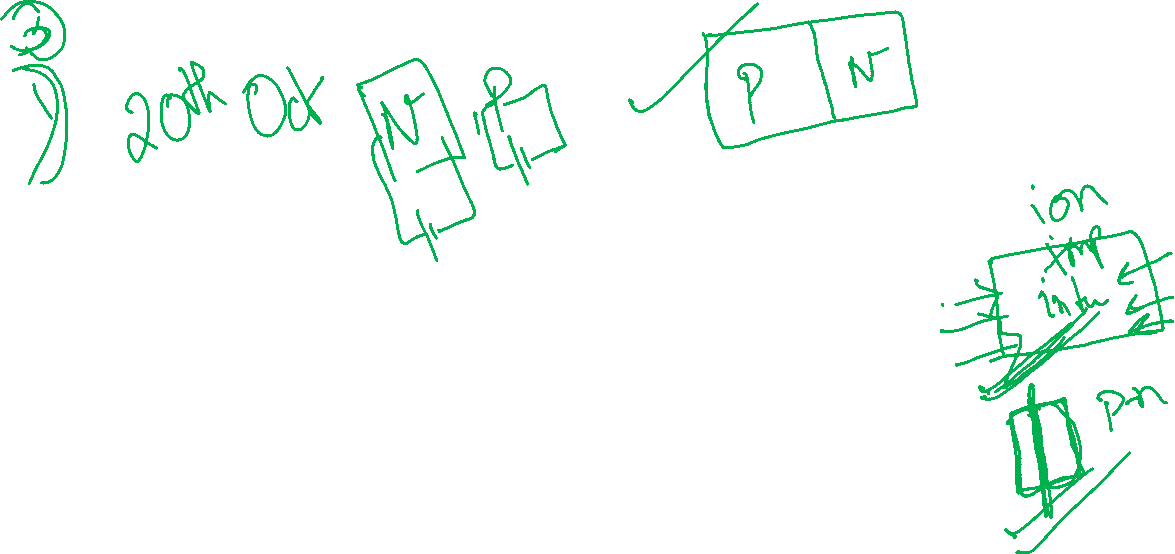 3
20th Oct
N
P
P N
ion
imp
intr
pn